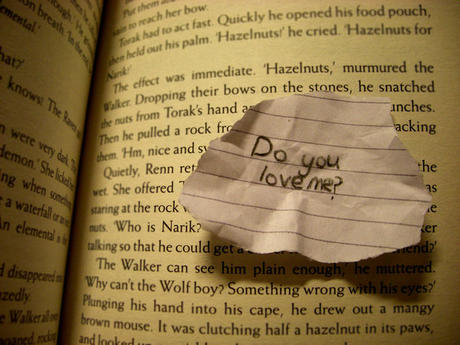 emental.'
hat?'
knows! The Raven
em were very dark. The
demon.' She licked her
ing when something
a waterfall or an
An elemental a
disappeared
azedly.
the Walker all over
moaned, rocking
Put them
vain to reach her bow.
Torak had to act fast. Quickly he opened his food pouch,
then held out his palm. 'Hazelnuts!' he cried. 'Hazelnuts for
Narik!'
The effect was immediate. 'Hazelnuts,' murmured the
Walker. Dropping their bows on the stones, he snatched
the nuts from Torak's hand an unches.
Then he pulled a rock from acking
them. 'Hm, nice and sw
Quietly, Renn ret the
wet. She offered T
staring at the rock
nuts. 'Who is Narik?
talking so that he could get a friend?'
'The Walker can see him plain enough,' he muttered.
'Why can't the Wolf boy? Something wrong with his eyes?'
Plunging his hand into his cape, he drew out a mangy
brown mouse. It was clutching half a hazelnut in its paws,
and looked up
Do you
love me?